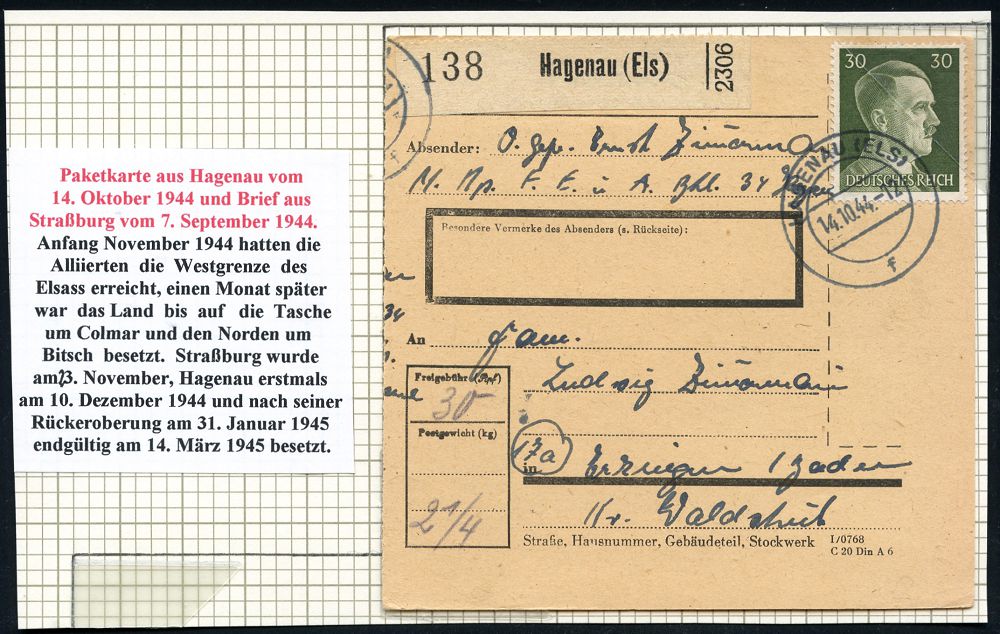 Paketkarte aus Hagenau vom
14. Oktober 1944 und Brief aus
Straßburg vom 7. September 1944.
Anfang November 1944 hatten die
Alliierten die Westgrenze des
Elsass erreicht, einen Monat später
war das Land bis auf die Tasche
um Colmar und den Norden um
Bitsch besetzt. Straßburg wurde
am 23. November, Hagenau erstmals
am 10. Dezember 1944 und nach seiner
Rückeroberung am 31. Januar 1945
endgültig am 14. März 1945 besetzt.
138 Hagenau (Els) 2306
30 30
DEUTSCHES REICH
HAGENAU (ELS)
14.10.44.-12
f
Absender: O. Gefr. Ernst
M. Np. F. E. u. A. 34 Hagenau
Besondere Vermerke des Absenders (s. Rückseite):
34
An Fam.
Ludwig
Freigebühr (Rpf)
30
Postgewicht (kg)
2 1/4
17a
in Erzingen / Baden
Kr. Waldshut
Straße, Hausnummer, Gebäudeteil, Stockwerk
I/0768
C 20 Din A 6